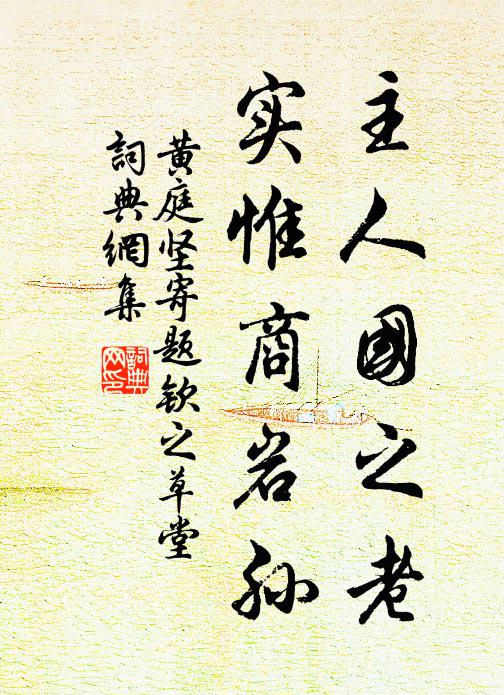 主人國之老
实惟商岩孙
黄庭坚寄题钦之草堂
詞典網集
詞典网印